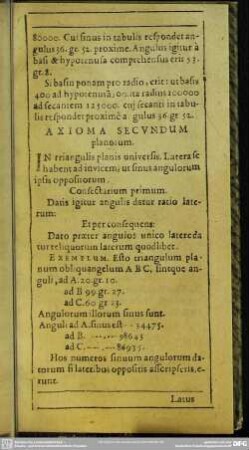 80000. Cui sinus in tabulis respondet an-
gulus 36. gr. 52. proxime. Angulus igitur à
basi & hypotenusa comprehensus erit 53.
gr. 8.
Si basin ponam pro radio, erit: ut basis
400 ad hypotenusā; ita radius 100000
ad secantem 125000. cuj secanti in tabu-
lis respondet proximè a gulus 36 gr 52.
AXIOMA SECVNDUM
planorum.
IN triangulis planis universis. Latera se
habent ad invicem, ut sinus angulorum
ipsis oppositorum.
Consectarium primum.
Datis igitur angulis datur ratio late-
rum:
Et per consequens:
Dato præter angulos unico latere da
tur reliquorum laterum quodlibet.
EXEMPLUM. Esto triangulum pla
num obliquangelum ABC, sintque an-
guli, ad A. 20. gr 10.
ad B 99. gr. 27.
ad C. 60 gr 23.
Angulorum illorum sinus sunt.
Anguli ad A. sinus est 34475.
ad B. 98643
ad C. 86935.
Hos numeros sinuum angulorum da
torum si lateribus oppositis ascripseris, e-
runt.
Latus